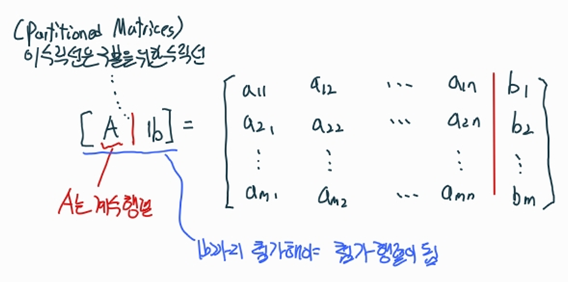 (Partitioned Matrices)
이 수직선은 구분을 위한 수직선
[ A | b ] = [ a11 a12 ⋯ a1n | b1
a21 a22 ⋯ a2n | b2
⋮ ⋮ ⋮ ⋮
am1 am2 ⋯ amn | bm ]
A는 계수행렬
b까지 첨가해야 첨가행렬이 됨